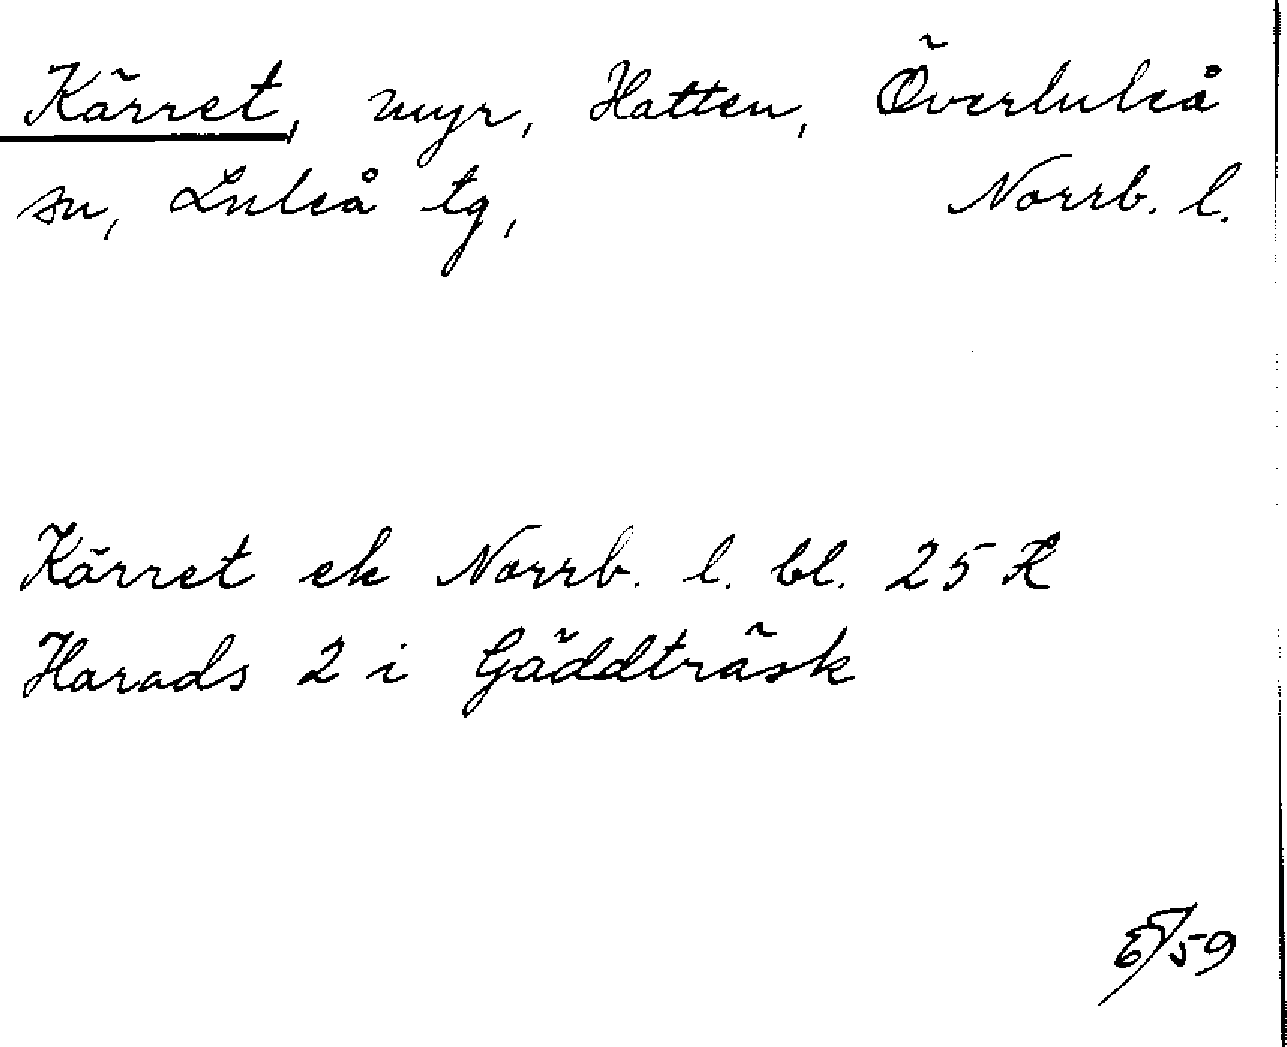 Kärret, myr, Hatten, Överluleå
sn, Luleå tg, Norrb. l.
Kärret ek Norrb. l. bl. 25 R
Harads 2 i Gäddträsk
/59